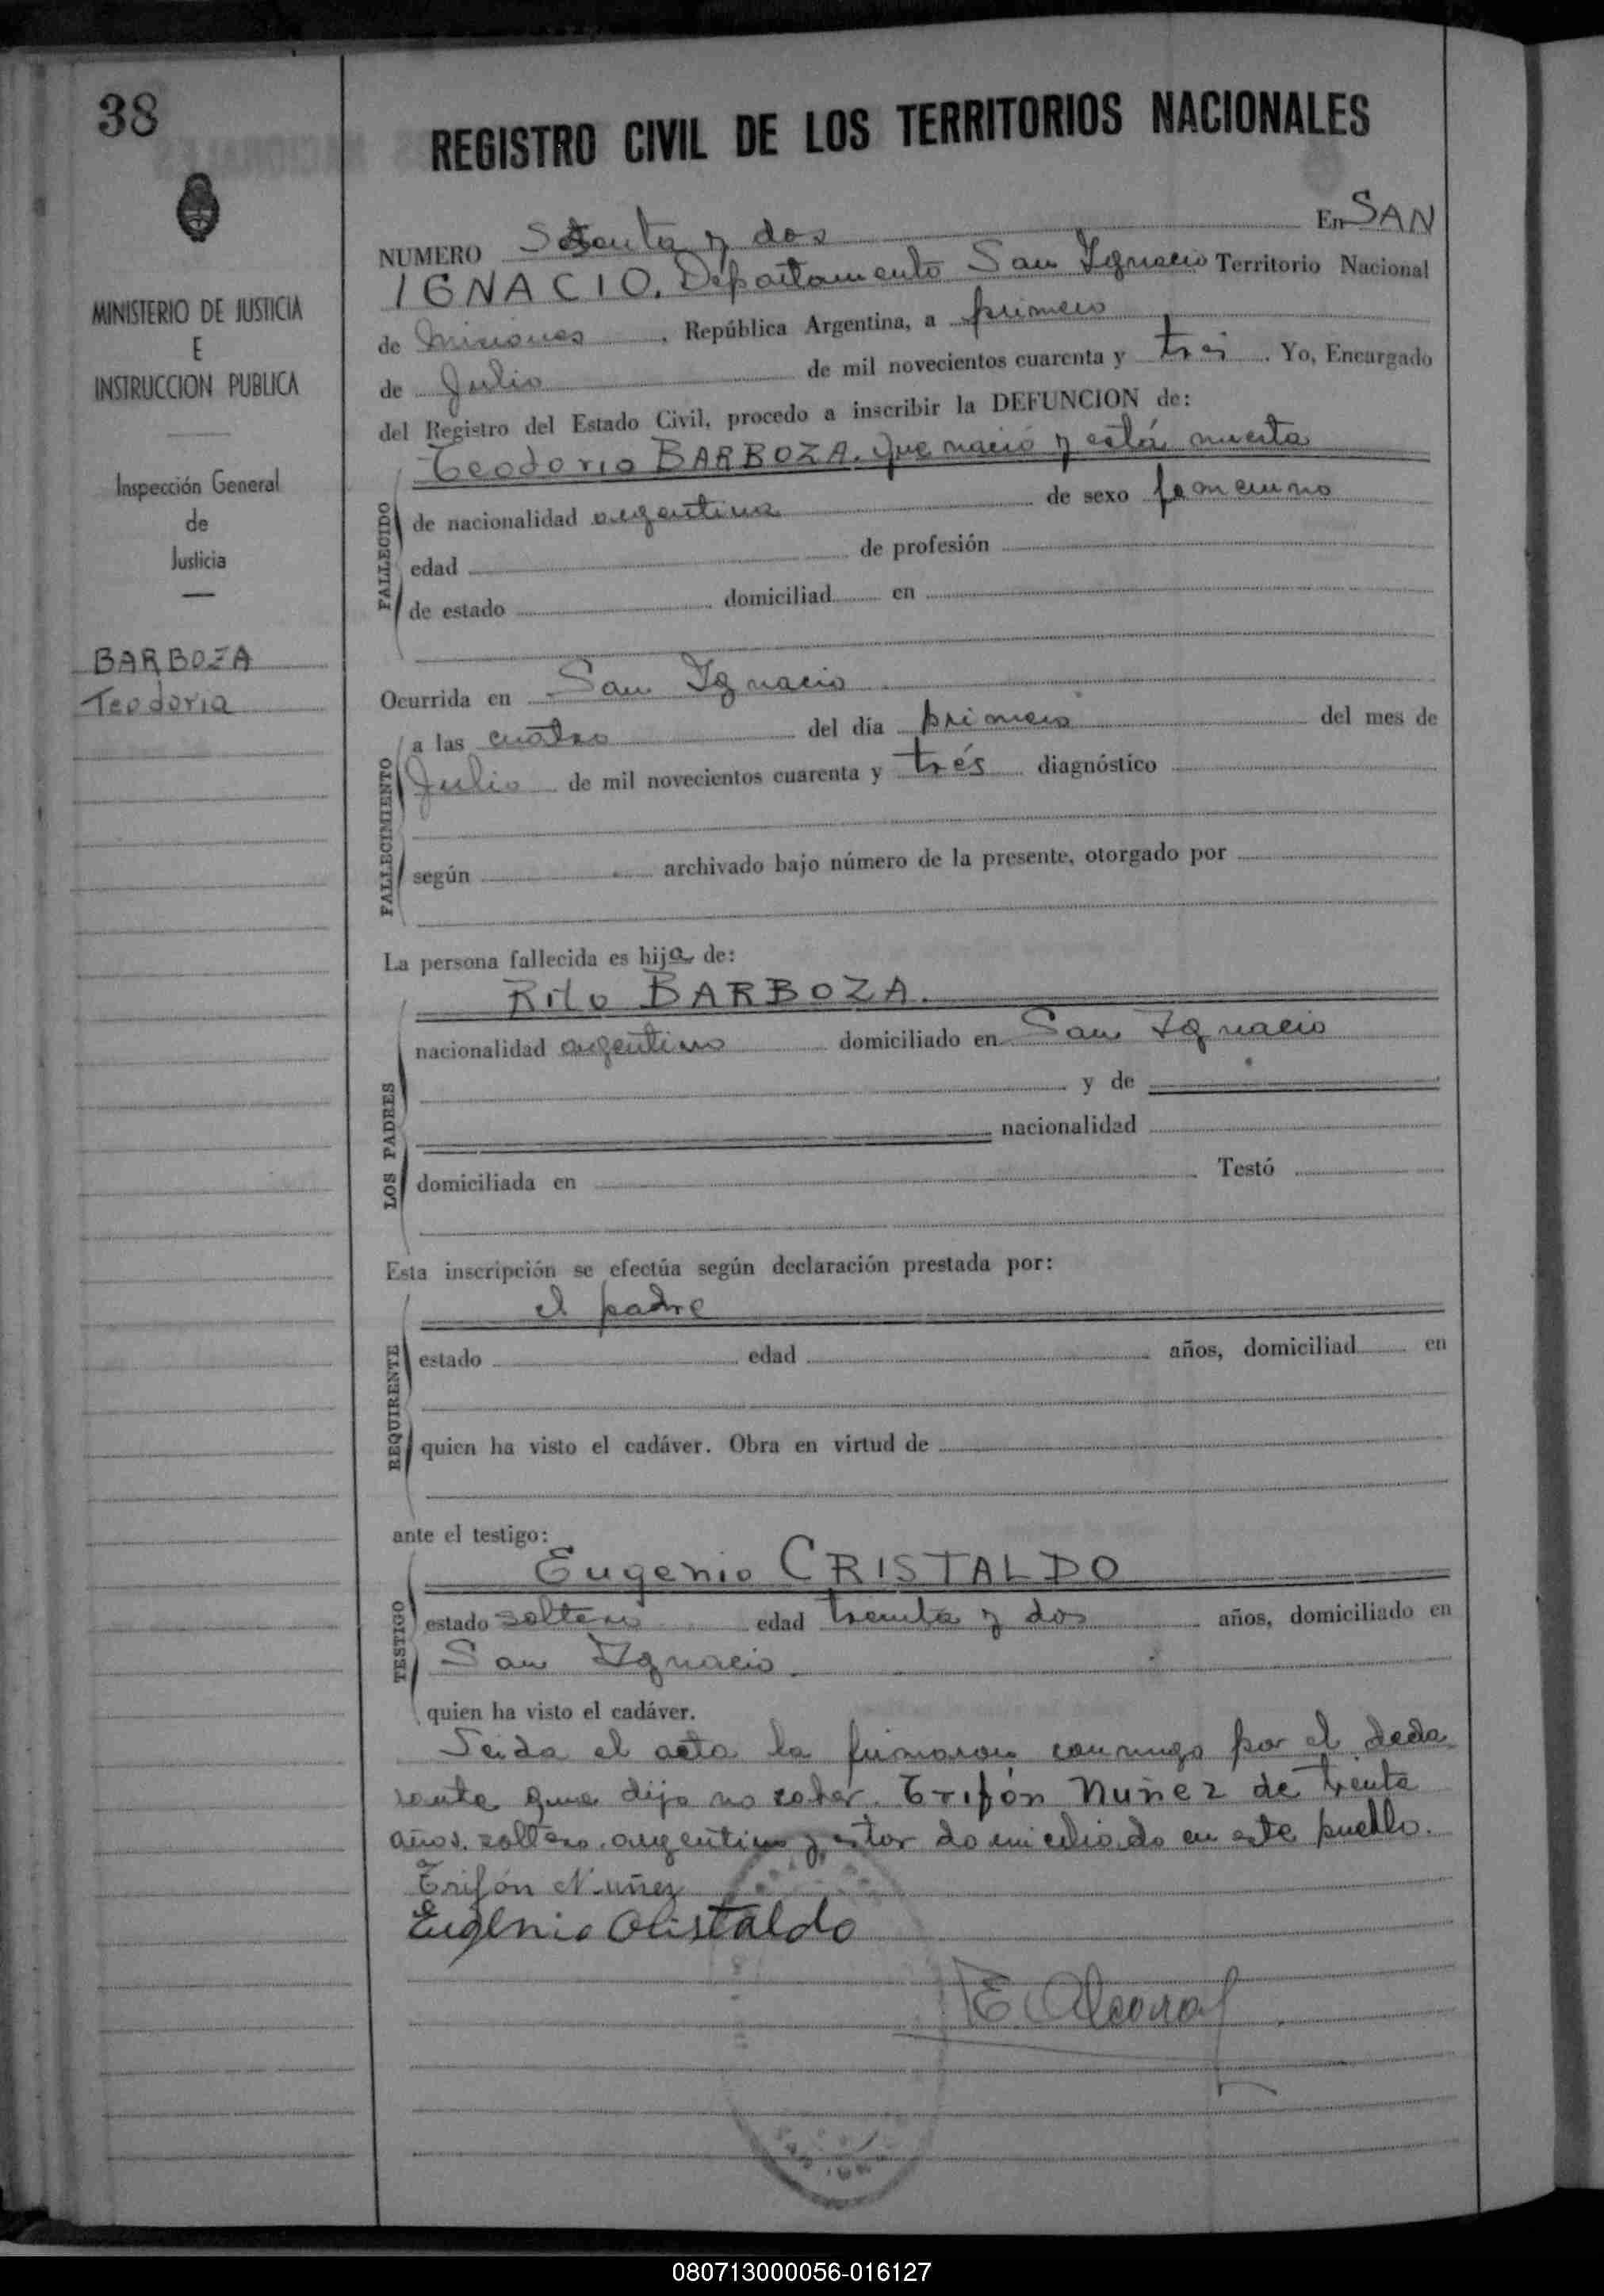 38
REGISTRO CIVIL DE LOS TERRITORIOS NACIONALES
MINISTERIO DE JUSTICIA
E
INSTRUCCION PUBLICA
Inspección General
de
Justicia
BARBOZA
Teodoria
NUMERO Setenta y dos En SAN
IGNACIO. Departamento San Ignacio Territorio Nacional
de Misiones, República Argentina, a primero
de Julio de mil novecientos cuarenta y tres. Yo, Encargado
del Registro del Estado Civil, procedo a inscribir la DEFUNCION de:
Teodoria BARBOZA. que nació y está muerta
FALLECIDO
de nacionalidad argentina de sexo femenino
edad de profesión
de estado domiciliad en
Ocurrida en San Ignacio
a las cuatro del día primero del mes de
FALLECIMIENTO
Julio de mil novecientos cuarenta y trés diagnóstico
según archivado bajo número de la presente, otorgado por
La persona fallecida es hija de:
Rito BARBOZA.
nacionalidad argentino domiciliado en San Ignacio
y de
LOS PADRES
nacionalidad
domiciliada en Testó
Esta inscripción se efectúa según declaración prestada por:
el padre
REQUIRENTE
estado edad años, domiciliad en
quien ha visto el cadáver. Obra en virtud de
ante el testigo:
Eugenio CRISTALDO
TESTIGO
estado soltero edad treinta y dos años, domiciliado en
San Ignacio.
quien ha visto el cadáver.
Leida el acta la firmaron conmigo por el decla
rante que dijo no saber. Trifón Nuñez de treinta
años. soltero. argentino y estar domiciliado en este pueblo.
Trifón Nuñez
Eugenio Cristaldo
080713000056-016127